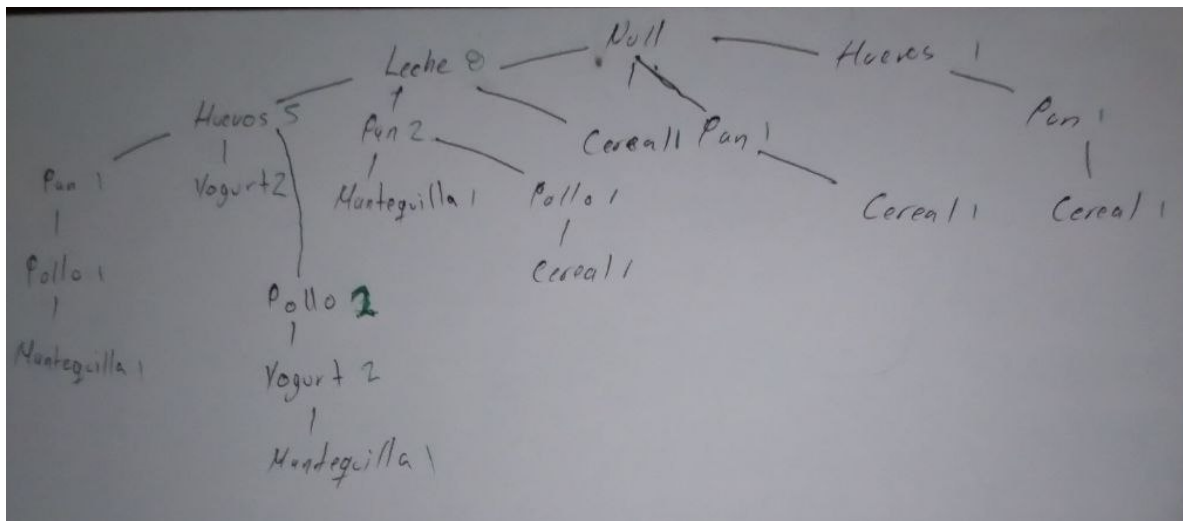 Null
Leche 8
Huevos 1
Huevos 5
Pan 2
Cereal 1
Pan 1
Pan 1
Pan 1
Yogurt 2
Mantequilla 1
Pollo 1
Cereal 1
Cereal 1
Pollo 1
Pollo 2
Cereal 1
Mantequilla 1
Yogurt 2
Mantequilla 1